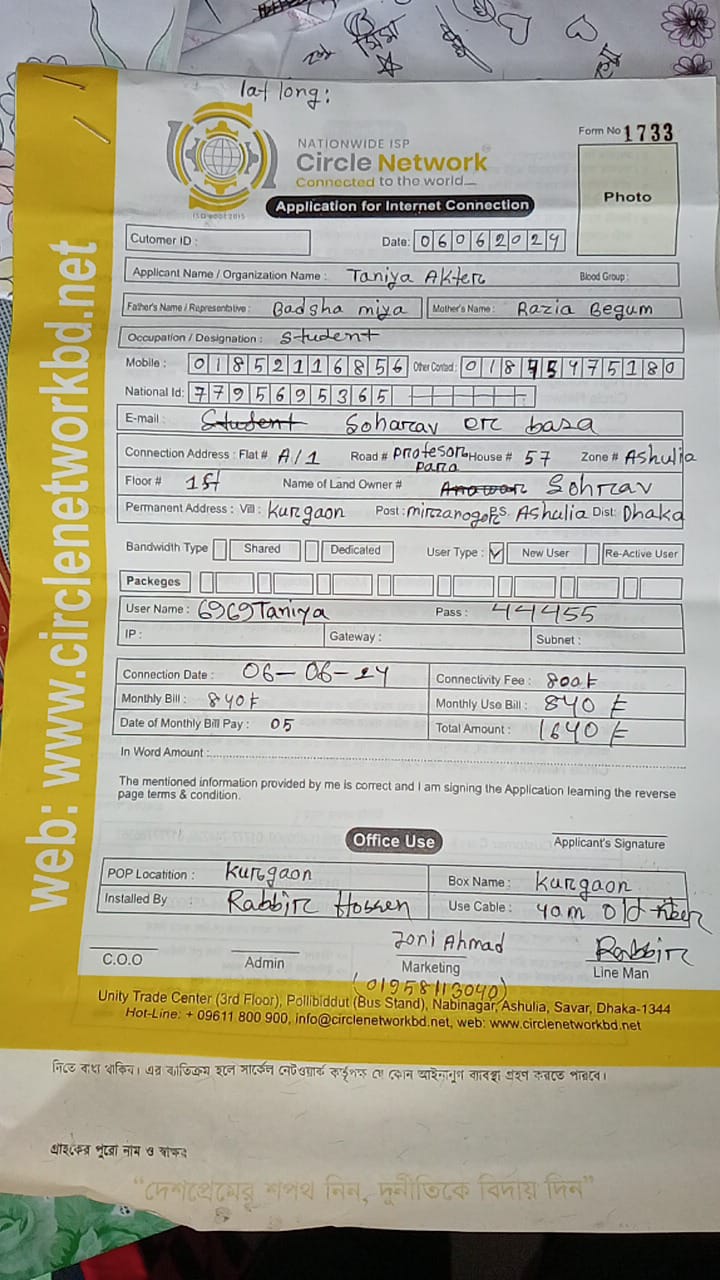 lat long:
NATIONWIDE ISP
Circle Network
Connected to the world
ISO 9001:2015
Form No 1733
Photo
Application for Internet Connection
Cutomer ID :
Date: 06062024
Applicant Name / Organization Name : Taniya Akter Blood Group :
Father's Name / Representative : Badsha miya Mother's Name : Razia Begum
Occupation / Designation : Student
Mobile : 01852116856 Other Contact : 01875975180
National Id: 7795695365
E-mail : Student Soharav er basa
Connection Address : Flat # A/1 Road # Profesor para House # 57 Zone # Ashulia
Floor # 1st Name of Land Owner # Anowar Sohrav
Permanent Address : Vill : Kurgaon Post : mirzanogor P.S. Ashulia Dist: Dhaka
Bandwidth Type Shared Dedicated User Type : New User Re-Active User
Packeges
User Name : 6969Taniya Pass : 44455
IP : Gateway : Subnet :
Connection Date : 06-06-24 Connectivity Fee : 800৳
Monthly Bill : 840৳ Monthly Use Bill : 840 ৳
Date of Monthly Bill Pay : 05 Total Amount : 1640 ৳
In Word Amount :
The mentioned information provided by me is correct and I am signing the Application learning the reverse
page terms & condition.
Office Use
Applicant's Signature
POP Locatition : Kurgaon Box Name : Kurgaon
Installed By : Rabbir Hossen Use Cable : 40m Old fiber
Joni Ahmad Rabbir
C.O.O Admin Marketing Line Man
(01958113040)
Unity Trade Center (3rd Floor), Pollibiddut (Bus Stand), Nabinagar, Ashulia, Savar, Dhaka-1344
Hot-Line: + 09611 800 900, info@circlenetworkbd.net, web: www.circlenetworkbd.net
web: www.circlenetworkbd.net
নিতে বাধ্য থাকিব। এর ব্যতিক্রম হলে সার্কেল নেটওয়ার্ক কর্তৃপক্ষ যে কোন আইনানুগ ব্যবস্থা গ্রহণ করতে পারবে।
গ্রাহকের পুরো নাম ও স্বাক্ষর
"দেশপ্রেমের শপথ নিন, দুর্নীতিকে বিদায় দিন"